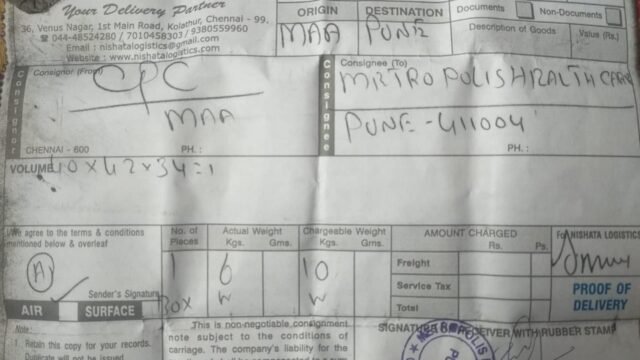 Your Delivery Partner
36, Venus Nagar, 1st Main Road, Kolathur, Chennai - 99.
044-48524280 / 7010458303 / 9380559960
Email : nishatalogistics@gmail.com
Website : www.nishatalogistics.com
ORIGIN DESTINATION
MAA PUNE
Documents Non-Documents
Description of Goods Value (Rs.)
Consignor
Consignor (From)
CPC
MAA
CHENNAI - 600 PH. :
Consignee
Consignee (To)
METROPOLIS HEALTH CARE
PUNE - 411004
PH. :
VOLUME 40 x 42 x 34 = 1
I/We agree to the terms & conditions
mentioned below & overleaf
A
Sender's Signature
AIR SURFACE
No. of Pieces
1
BOX
Actual Weight
Kgs. Gms.
6
Chargeable Weight
Kgs. Gms.
10
AMOUNT CHARGED
Rs. Ps.
Freight
Service Tax
Total
For NISHATA LOGISTICS
PROOF OF
DELIVERY
Note :
1. Retain this copy for your records.
Duplicate will not be issued
This is non-negotiable consignment
note subject to the conditions of
carriage. The company's liability for the
SIGNATURE RECEIVER WITH RUBBER STAMP